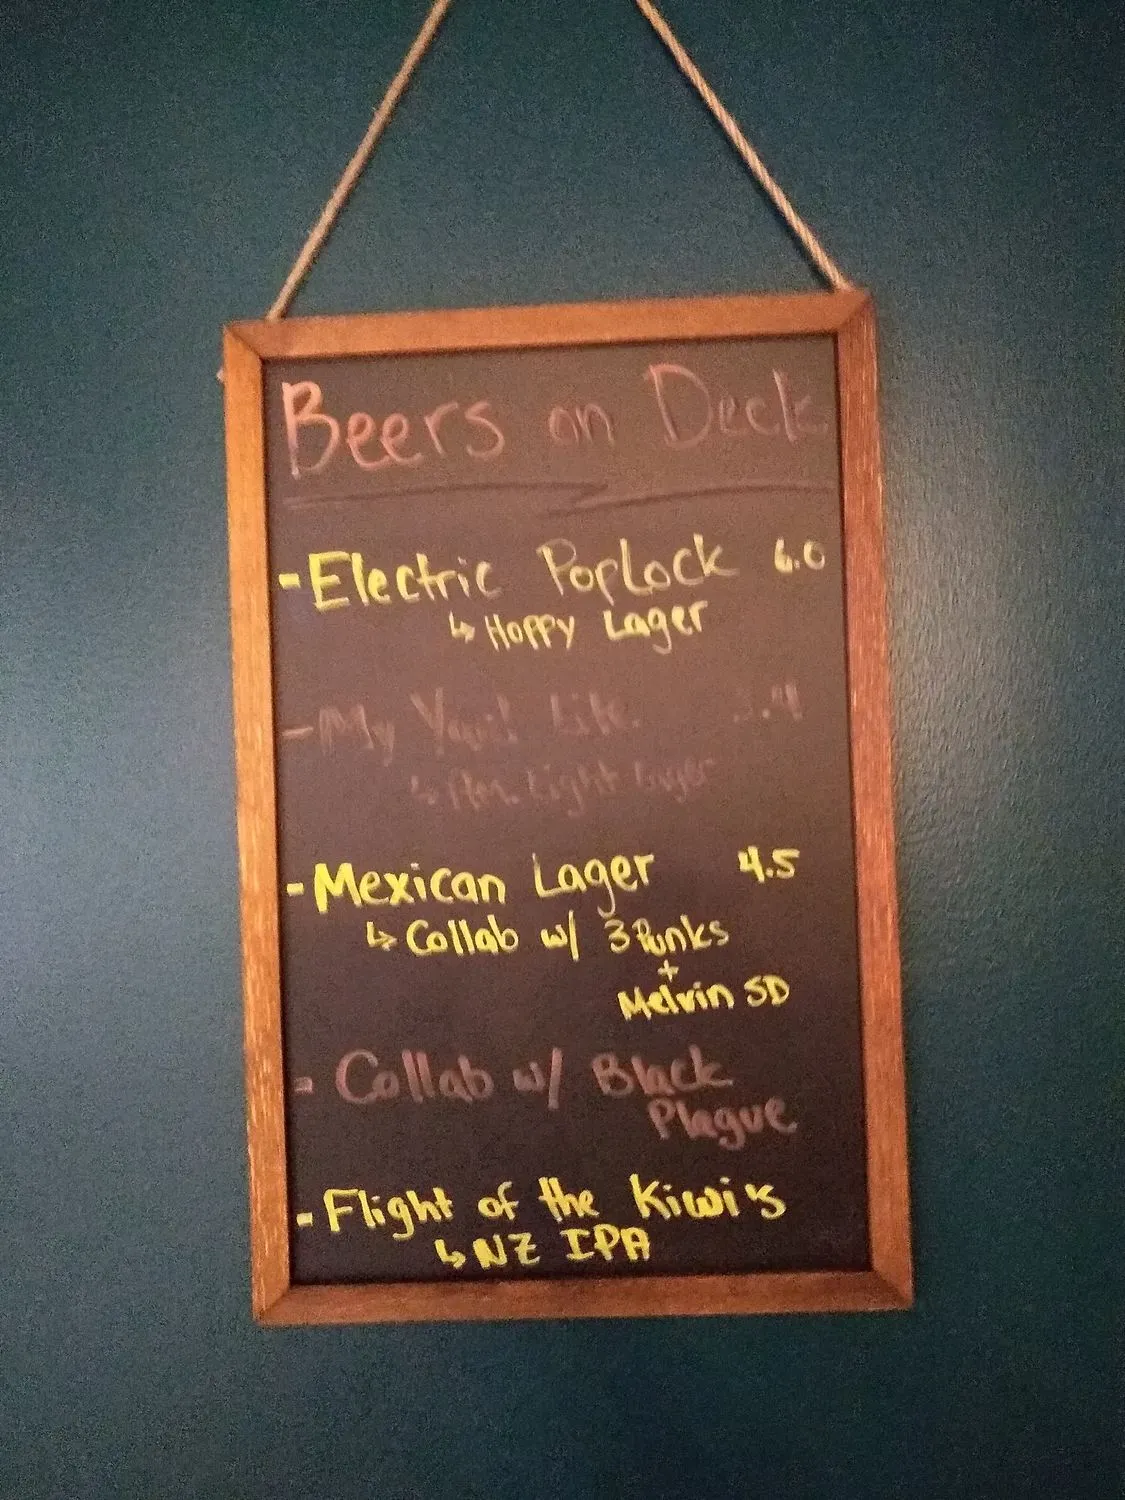 Beers on Deck
- Electric Poplock 6.0
↳ Hoppy Lager
- My
↳ Light Lager
- Mexican Lager 4.5
↳ Collab w/ 3 Punks
+
Melvin SD
- Collab w/ Black
Plague
- Flight of the Kiwi's
↳ NZ IPA